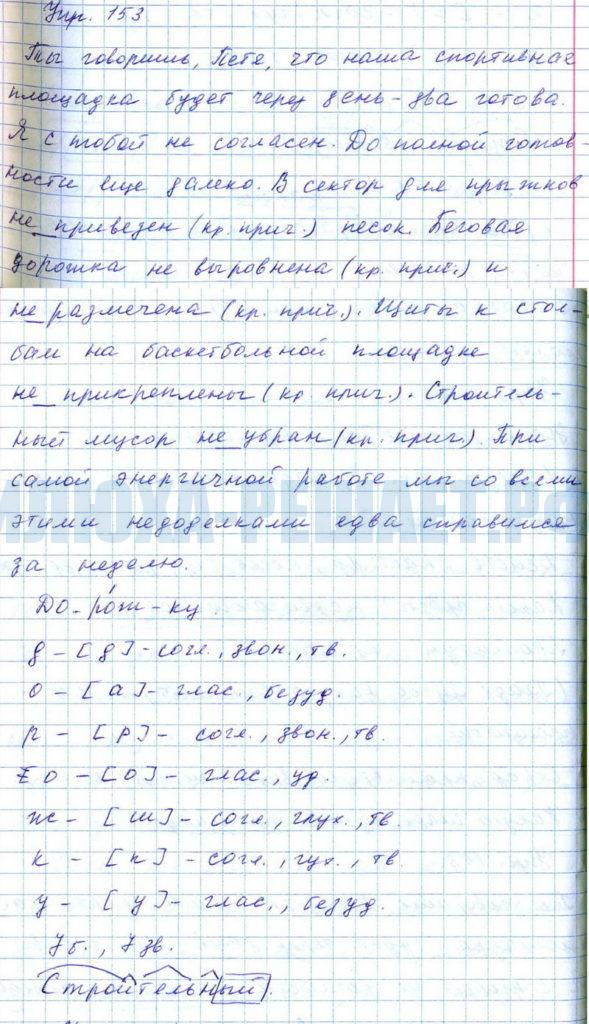 Упр. 153
Ты говоришь, Петя, что наша спортивная
площадка будет через день-два готова.
Я с тобой не согласен. До полной готов-
ности еще далеко. В сектор для прыжков
не_приведен (кр. прич.) песок. Беговая
дорожка не выровнена (кр. прич.) и
не_размечена (кр. прич.). Щиты к стол-
бам на баскетбольной площадке
не_прикреплены (кр. прич.). Строитель-
ный мусор не_убран (кр. прич.). При
самой энергичной работе мы со всеми
этими недоделками едва справимся
за неделю.
До-ро́ж-ку.
д - [д] - согл., звон., тв.
о - [а] - глас., безуд.
р - [р] - согл., звон., тв.
о - [о] - глас., уд.
ж - [ш] - согл., глух., тв.
к - [к] - согл., гух., тв.
у - [у] - глас., безуд.
7 б., 7 зв.
Строительный.